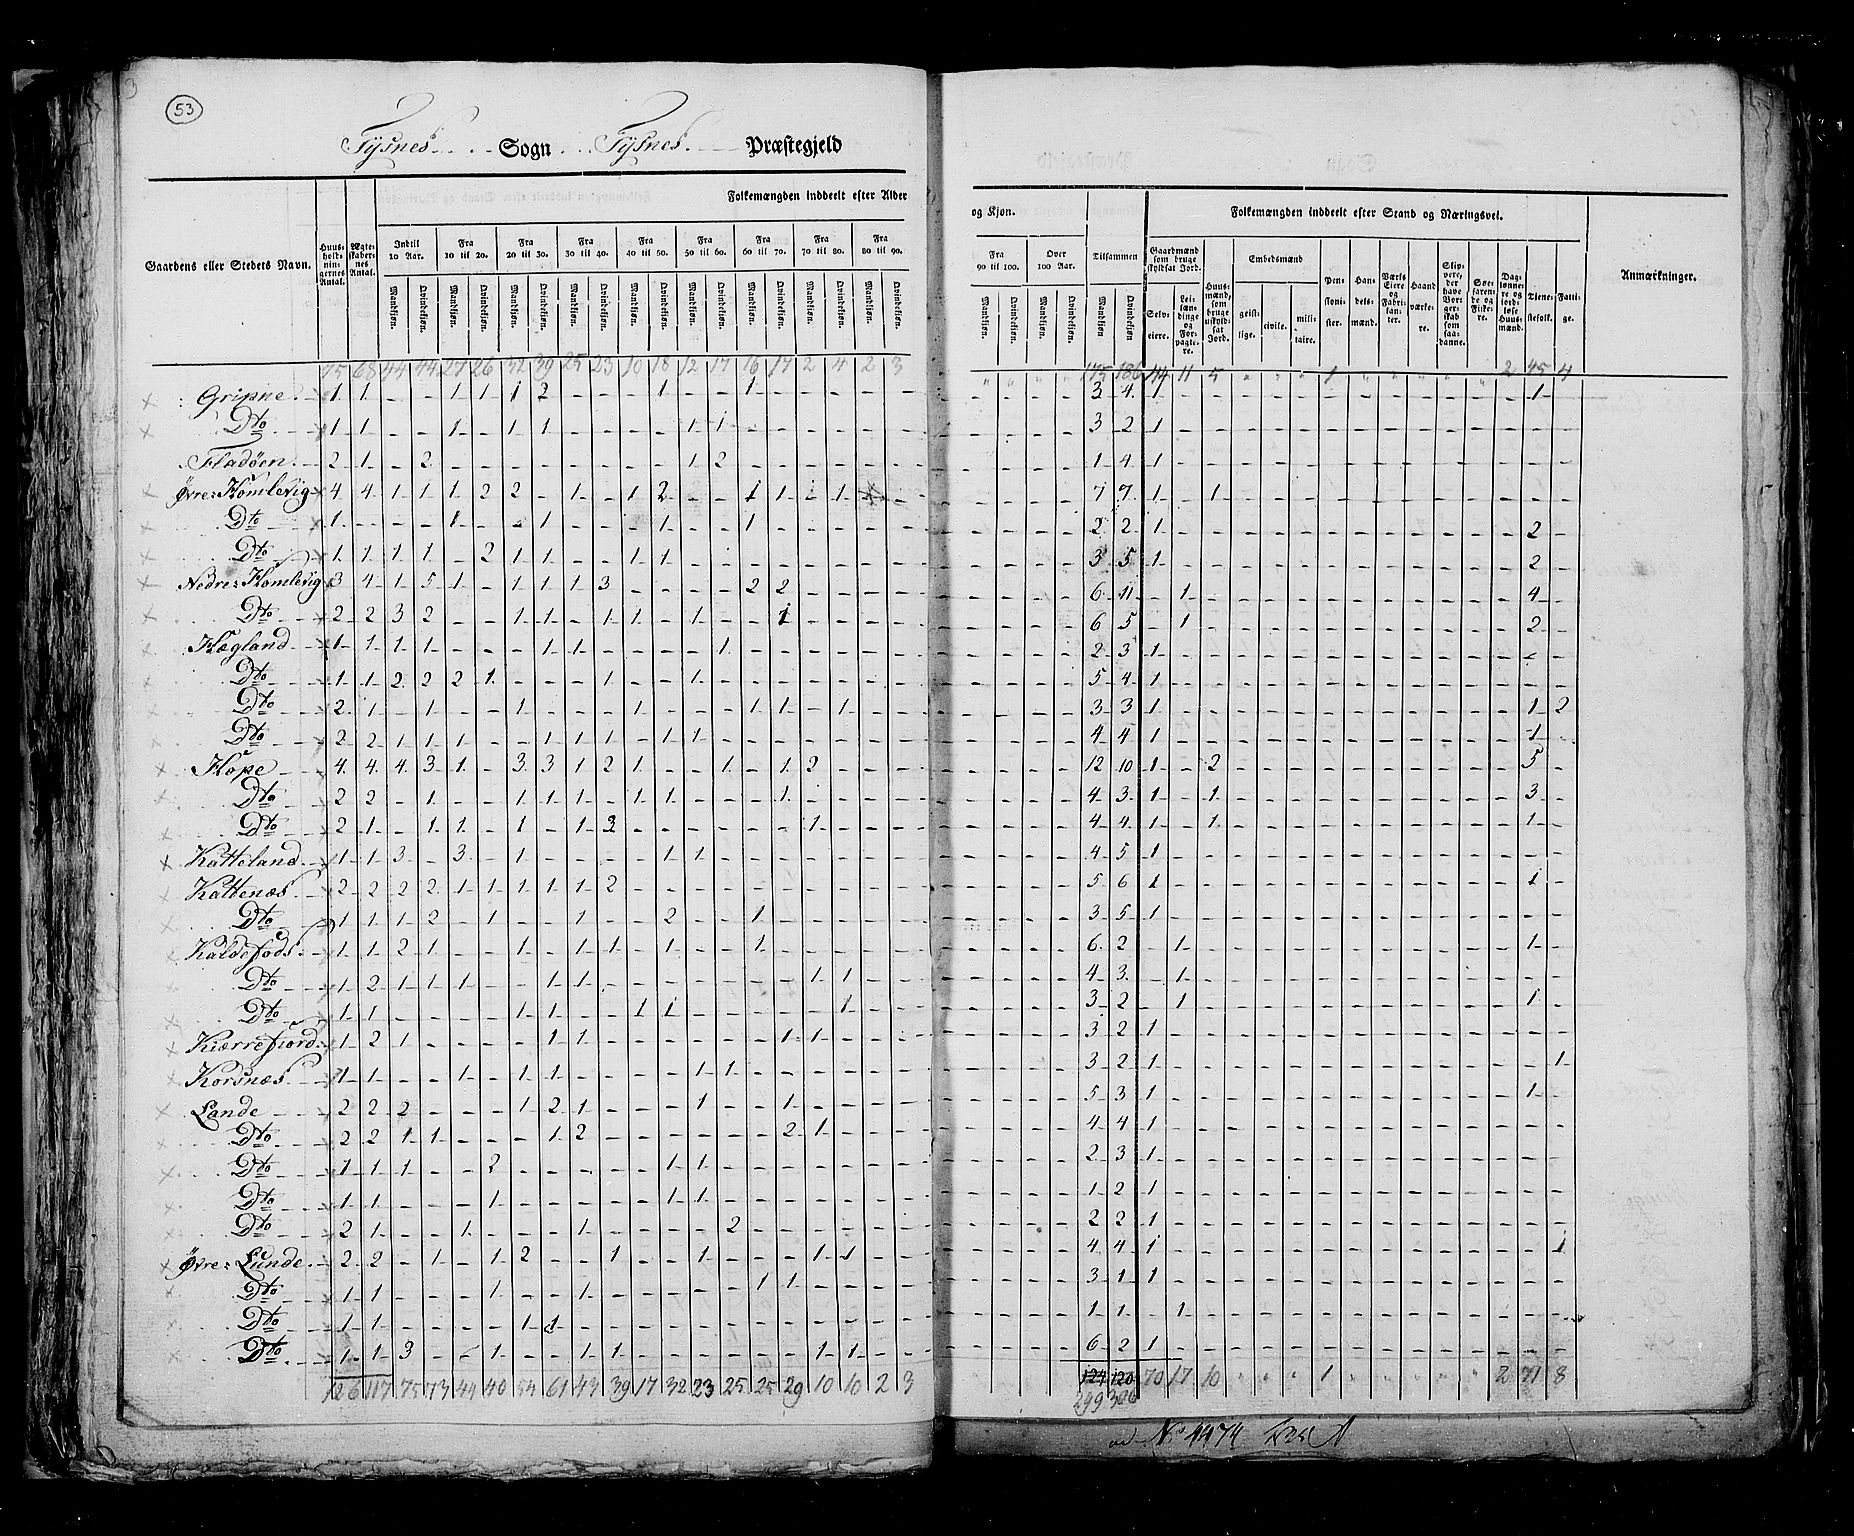 53
Tysnes Sogn Tysnes Præstegjeld
Folkemængden inddeelt efter Alder og Kjøn.
Folkemængden inddeelt efter Stand og Næringsvei.
Gaardens eller Stedets Navn. Huusholdningernes Antal. Ægteskabernes Antal. Indtil 10 Aar. Fra 10 til 20. Fra 20 til 30. Fra 30 til 40. Fra 40 til 50. Fra 50 til 60. Fra 60 til 70. Fra 70 til 80. Fra 80 til 90. Fra 90 til 100. Over 100 Aar. Tilsammen Gaardmænd som bruge skyldsat Jord. Huusmænd, som bruge uskyldsat Jord. Embedsmænd Pensionister. Handelsmænd. Værks Eiere og Fabrikanter. Haandværkere. Skippere, der have Borgerskab som saadanne. Søefarende og Fiskere. Daglønnere og jordløse Huusmænd. Tjenestefolk. Fattige. Anmærkninger.
Mandkjøn. Qvindekjøn. Mandkjøn. Qvindekjøn. Mandkjøn. Qvindekjøn. Mandkjøn. Qvindekjøn. Mandkjøn. Qvindekjøn. Mandkjøn. Qvindekjøn. Mandkjøn. Qvindekjøn. Mandkjøn. Qvindekjøn. Mandkjøn. Qvindekjøn. Mandkjøn. Qvindekjøn. Mandkjøn. Qvindekjøn. Mandkjøn. Qvindekjøn Selveiere. Leilændinge og Forpagtere. geistlige. civile. militaire.
75 68 44 44 27 26 32 39 25 23 10 18 12 17 16 17 2 4 2 3 175 186 44 11 5 1 2 45 4
Gripne 1 1 - - 1 1 1 2 - - - 1 - - 1 - - - - - 3 4 1 - - 1 -
Dto 1 1 - - 1 - 1 1 - - - - 1 1 - - - - - - 3 2 1
Fladöen 2 1 - 2 - - - - - - - - 1 2 - - - - - - 1 4 1
Øvre Homlevig 4 4 1 1 1 2 2 - 1 - 1 2 - - 1 1 - 1 - - 7 7 1 - 1
Dto 1 - - - 1 - - 1 - - - 1 - - 1 - - - - - 2 2 1 2
Dto 1 1 1 1 - 2 1 1 - - 1 1 - - - - - - - - 3 5 1 2
Nedre Homlevig 3 4 1 5 1 - 1 1 1 3 - - - - 2 2 - - - - 6 11 - 1 4
Dto 2 2 3 2 - - 1 1 - 1 1 - 1 - - 1 - - - - 6 5 - 1 2
Hægland 1 1 1 1 - - - 1 1 - - - - 1 - - - - - - 2 3 1
Dto 1 1 2 2 2 1 - - - 1 - - 1 - - - - - - - 5 4 1
Dto 2 1 - 1 - - 1 - - - 1 - - - 1 1 - 1 - - 3 3 1 1 2
Dto 2 2 1 1 1 - - 1 1 1 - 1 1 - - - - - - - 4 4 1 1
Hope 4 4 4 3 1 - 3 3 1 2 1 - - 1 - 1 2 - - - 12 10 1 - 2 5
Dto 2 2 - 1 - - 1 1 1 - 1 1 - - - 1 - - - - 4 3 1 - 1 3
Dto 2 1 - 1 1 - 1 - 1 3 - - - - - - 1 - - - 4 4 1 - 1 1
Katteland 1 1 3 - 3 - 1 - - - - 1 1 - - - - - - - 4 5 1
Kattenæs 2 2 2 2 1 1 1 1 1 2 - - - - - - - - - - 5 6 1 1
Dto 1 1 1 2 - 1 - - 1 - - 2 - - 1 - - - - - 3 5 1
Kaldefods 1 1 2 1 - - 1 - 1 1 - 1 - - 1 - - - - - 6 2 - 1 1
Dto 1 2 1 1 1 - - 1 1 - - - - - - - 1 1 - - 4 3 - 1
Dto 1 1 - - - - 1 1 - - 1 1 - - - - - 1 - - 3 2 - 1 1
Kierrefiord 1 2 1 - - - - 1 1 - - - - - - 1 1 - - - 3 2 1
Korsnæs 1 1 - - 1 - 1 1 - - - - 1 1 - - - - - - 3 2 1 1
Lande 2 2 2 - - - 1 2 1 - - - 1 - - 1 - - - - 5 3 1 1
Dto 2 2 1 1 - - - 1 2 - - - - - - 2 1 - - - 4 4 1
Dto 1 1 1 - - 2 - - - - - 1 1 - - - - - - - 2 3 1
Dto 1 1 - - - 1 - - - - - 1 1 - - - - - - - 1 2 1
Dto 2 1 - - 1 - - - 1 - - - - 2 - - - - - - 2 2 1
Øvre Lunde 2 2 - 1 - 1 2 - - 1 - - 1 - - - 1 1 - - 4 4 1 1
Dto 1 1 - - - 1 - - 1 - - - - - 1 1 - - - - 3 1 1
Dto 1 1 - - - - 1 1 - - - - - - - - - - - - 1 1 - 1
Dto 1 1 3 - - 1 - - 1 1 - - - - - - 1 1 - - 6 2 1
126 117 75 73 44 40 54 61 43 39 17 32 23 25 25 29 10 10 2 3 124 120 70 17 10 1 2 71 8
299 306
No 1474